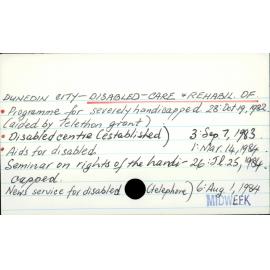 DUNEDIN CITY - DISABLED - CARE & REHABIL. OF.
Programme for severely handicapped 28: Oct 19, 1982
(aided by Telethon grant)
Disabled centre (established) 3: Sep 7, 1983
Aids for disabled. 1: Mar. 14, 1984
Seminar on rights of the handi- 26: Jl. 25, 1984
capped.
News service for disabled (telephone) 6: Aug 1, 1984
MIDWEEK